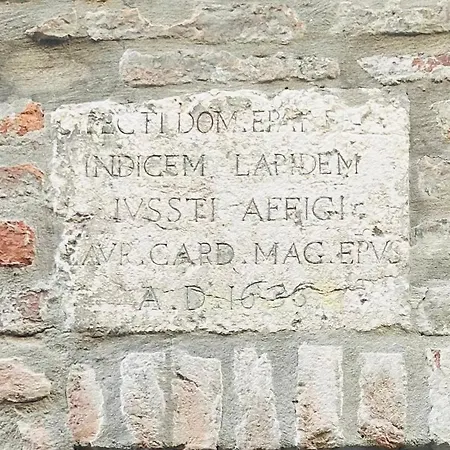 TECTI DOM. EPAT
INDICEM LAPIDEM
IVSSTI AFFIGI
AVR. CARD. MAG. EPVS
A. D. 1636